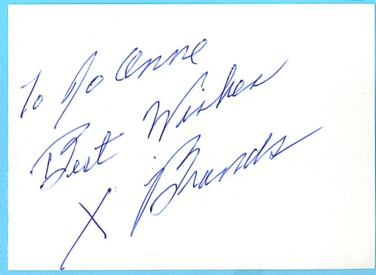 To Jo Anne
Best Wishes
X Brands